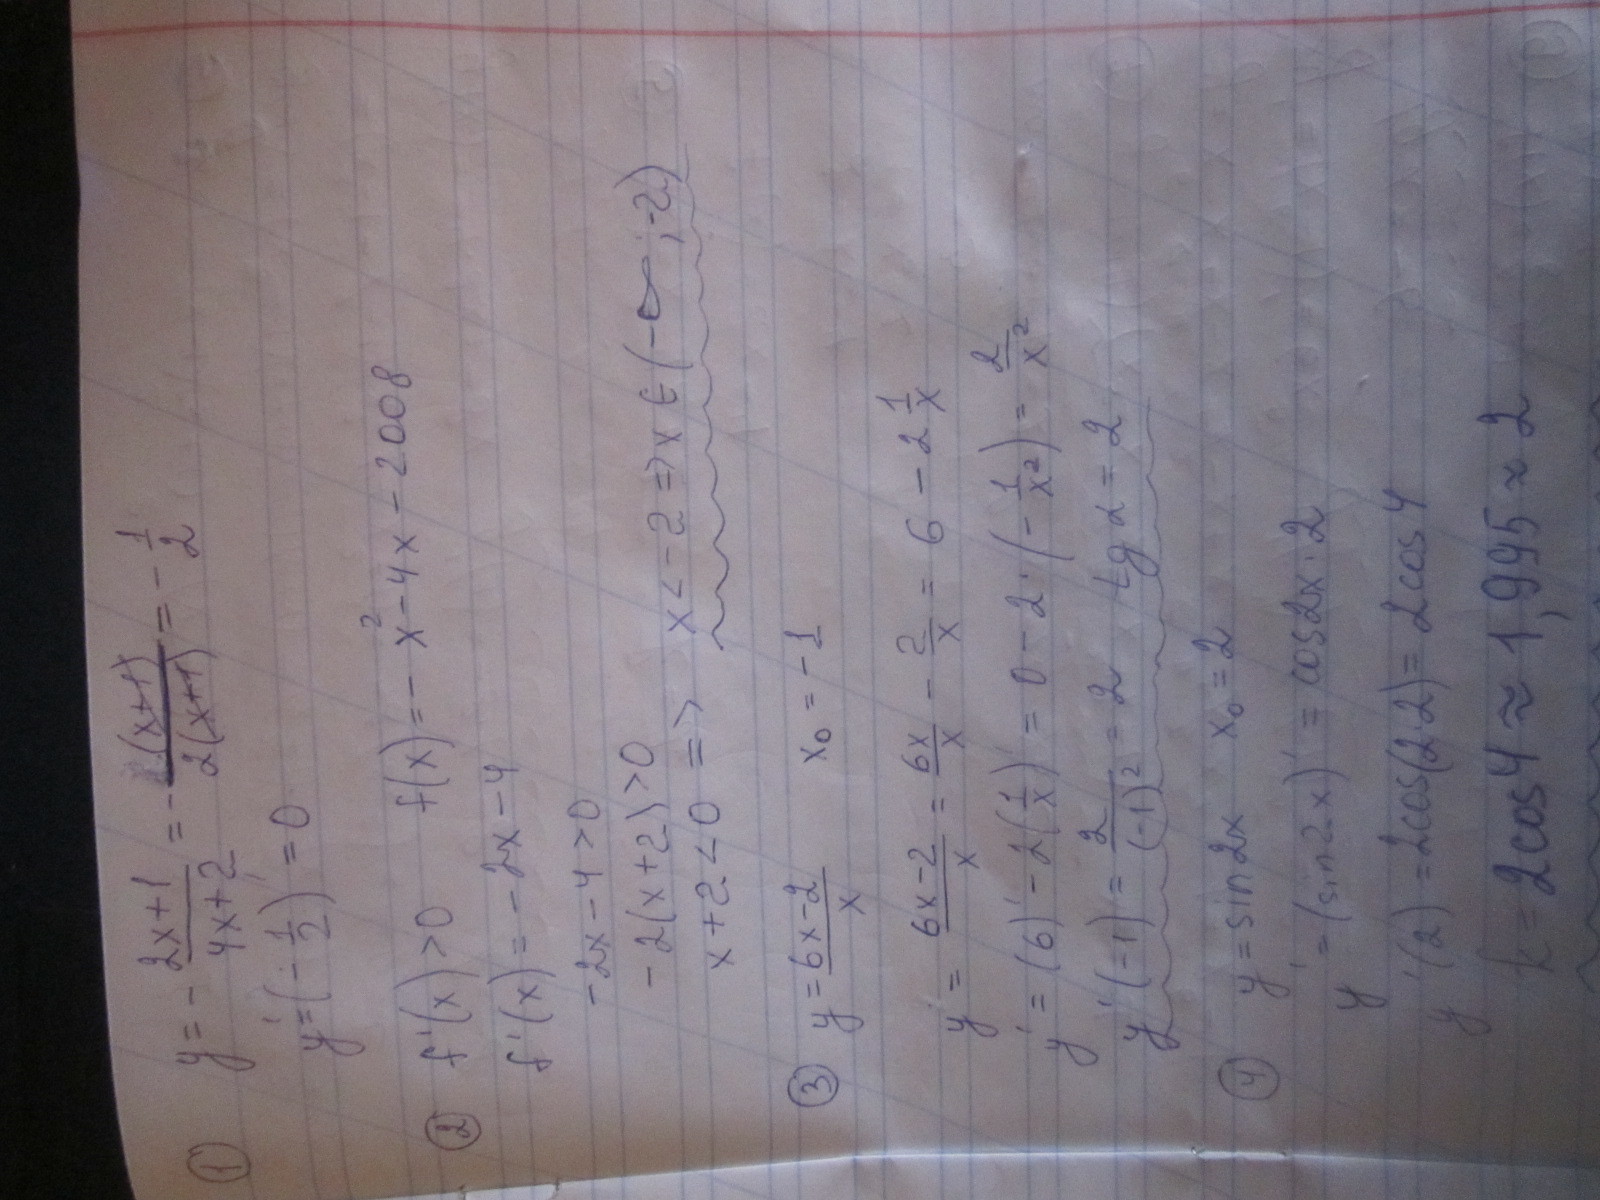 ① y = - 2x+1 / 4x+2 = - (x+1) / 2(x+1) = - 1/2
y' = (- 1/2)' = 0
② f'(x) > 0 f(x) = - x² - 4x - 2008
f'(x) = - 2x - 4
-2x - 4 > 0
-2(x+2) > 0
x+2 < 0 => x < -2 => x ∈ (-∞; -2)
③ y = 6x-2 / x x₀ = -1
y' = 6x-2 / x = 6x/x - 2/x = 6 - 2 1/x
y' = (6)' - 2(1/x)' = 0 - 2·(- 1/x²) = 2/x²
y'(-1) = 2/(-1)² = 2 tg α = 2
④ y = sin 2x x₀ = 2
y' = (sin 2x)' = cos 2x · 2
y'(2) = 2cos(2·2) = 2cos4
k = 2cos4 ≈ 1,995 ≈ 2